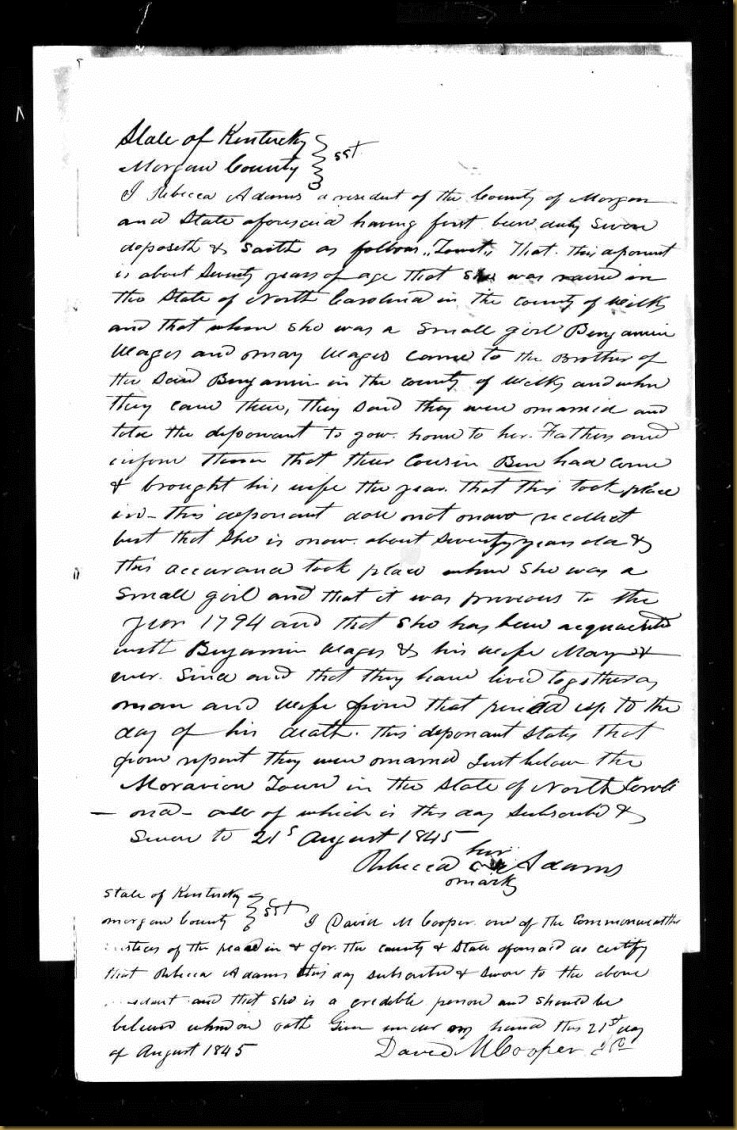 State of Kentucky
Morgan County } sst
I Rebecca Adams a resident of the County of Morgan
and State aforesaid having first been duly Sworn
deposeth & Saith as follows, "Towit," That this deponent
is about Seventy years of age that She was raised in
the State of North Carolina in the county of Wilks
and that when She was a Small girl Benjamin
Wages and Mary Wages came to the Brother of
the Said Benjamin in the county of Wilks and when
they came there, they Said they were married and
told the deponant to gow home to her Fathers and
inform them that their Cousin Ben had come
& brought his wife the year that this took place
in - this deponant doe not now recollect
but that She is now about Seventy years old &
this accurance took place when She was a
Small girl and that it was previous to the
year 1794 and that She has been acquainted
with Benjamin Wages & his wife Mary
ever Since and that they have lived together as
man and wife from that period up to the
day of his death. this deponant States that
from report they were married Just below the
Moravian Town in the State of North Caroli
- na - all of which is this day Subscribed &
Sworn to 21s August 1845
Rebecca her Adams
mark
State of Kentucky
Morgan County } sst I David M Cooper one of the Commonwealths
Justices of the peace in & for the county & State aforesaid do certify
that Rebecca Adams this day subscribed & Swore to the above
and that she is a credible person and should be
believed when on oath Given under my hand this 21st day
of August 1845 David M Cooper